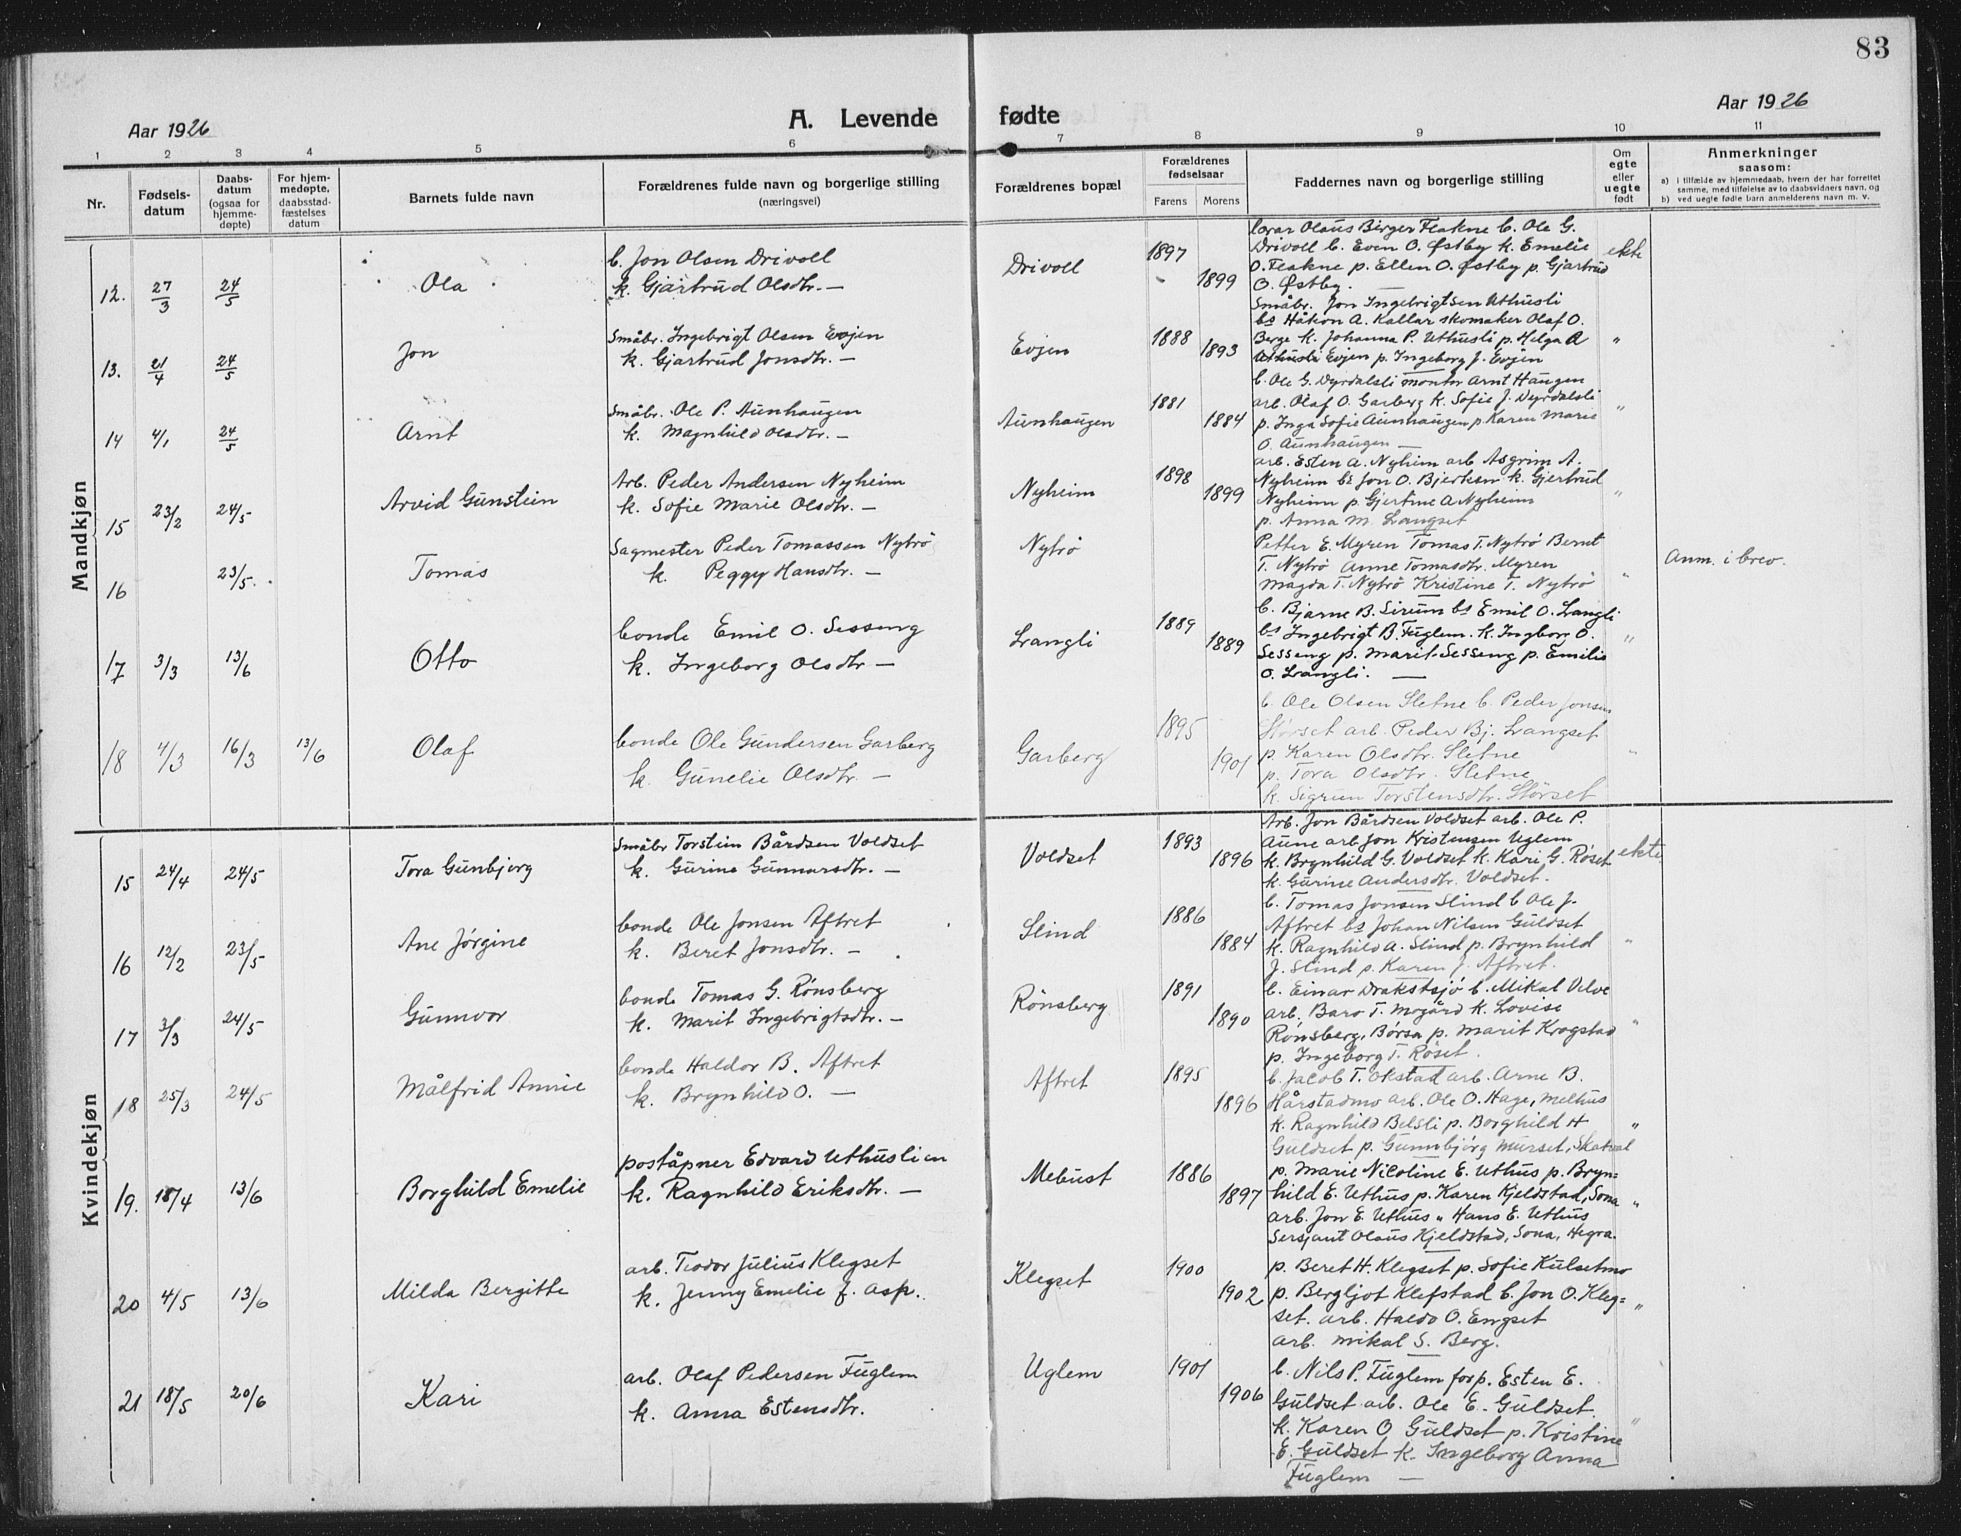 83
Aar 1926
A. Levende fødte
Aar 1926
1 2 3 4 5 6 7 8 9 10 11
Nr.
Fødsels-
datum
Daabs-
datum
(ogsaa for
hjemme-
døpte)
For hjem-
medøpte,
daabsstad-
fæstelses
datum
Barnets fulde navn
Forældrenes fulde navn og borgerlige stilling
(næringsvei)
Forældrenes bopæl
Forældrenes
fødselsaar
Farens Morens
Faddernes navn og borgerlige stilling
Om
egte
eller
uegte
født
Anmerkninger
saasom:
a) i tilfælde av hjemmedaab, hvem der har forrettet
samme, med tilføielse av to daabsvidners navn, og
b) ved uegte fødte barn anmelderens navn m. v.
Mandkjøn
12. 27/3 24/5 Ola
b. Jon Olsen Drivoll
k. Gjartrud Olsdtr. —
Drivoll 1897 1899
Olaus Birger Flakne b. Ole G.
Drivoll b. Even O. Østby k. Emelie
O. Flakne p. Ellen O. Østby p. Gjartrud
O. Østby. —
ekte
13. 21/4 24/5 Jon
Småbr. Ingebrigt Olsen Evjen
k. Gjartrud Jonsdtr. —
Evjen 1888 1893
Småbr. Jon Ingebrigtsen Uthusli
bs Håkon A. Kallar skomaker Olaf O.
Berge k. Johanna P. Uthusli p. Helga A
Uthusli Evjen p. Ingeborg J. Evjen
"
14 4/1 24/5 Arnt
Småbr. Ole P. Aunhaugen
k. Magnhild Olsdtr. —
Aunhaugen 1881 1884
b. Ole G. Dyrdalsli montør Arnt Haugen
arb. Olaf O. Garberg k. Sofie J. Dyrdalsli
p. Inga Sofie Aunhaugen p. Karen Marie
O. Aunhaugen —
"
15 23/2 24/5 Arvid Gunstein
Arb. Peder Andersen Nyheim
k. Sofie Marie Olsdtr. —
Nyheim 1898 1899
arb. Esten A. Nyheim arb Asgrim A.
Nyheim bs Jon O. Bjerken k. Gjertrud
Nyheim p. Gjertine A Nyheim
p. Anna M. Langset
"
16 23/5. Tomas
Sagmester Peder Tomassen Nytrø
k. Peggy Hansdtr. —
Nytrø
Petter E. Myren Tomas T. Nytrø Bernt
T. Nytrø Anne Tomasdtr. Myren
Magda T. Nytrø Kristine T. Nytrø
"
Anm. i brev.
17 3/3 13/6 Otto
bonde Emil O. Sesseng
k. Ingeborg Olsdtr —
Langli 1889 1889
b. Bjarne B. Sirum bs Emil O. Langli
bs Ingebrigt B. Fuglem. k. Ingborg O.
Sesseng p. Marit Sesseng p. Emilie
O. Langli. —
"
18 4/3 16/3 13/6 Olaf
bonde Ole Gundersen Garberg
k. Gunelie Olsdtr. —
Garberg 1895 1901
b. Ole Olsen Sletne b. Peder Jonsen
Størset arb. Peder Bj. Langset
p. Karen Olsdtr. Sletne
p. Tora Olsdtr. Sletne
k. Sigrun Torstensdtr. Størset
"
Kvindekjøn
15 24/4 24/5 Tora Gunbjørg
Småbr Torstein Bårdsen Voldset
k. Gurine Gunnarsdtr. —
Voldset 1893 1896
Arb. Jon Bårdsen Voldset arb. Ole P.
Aune arb Jon Kristensen Uglem
k. Brynhild G. Voldset k. Kari G. Røset
k. Gurine Andersdtr. Voldset.
ekte
16 12/2 23/5 Ane Jørgine
bonde Ole Jonsen Aftret
k. Beret Jonsdtr. —
Slind 1886 1884
b. Tomas Jonsen Slind b Ole J.
Aftret bs Johan Nilsen Guldset
k. Ragnhild A. Slind p. Brynhild
J. Slind p. Karen J. Aftret.
"
17 3/3 24/5 Gunnvor
bonde Tomas G. Rønsberg
k. Marit Ingebrigtsdtr. —
Rønsberg 1891 1890
b. Einar Drakstsjø b. Mikal Velve
arb. Baro T. Mogård k. Lovise
Rønsberg, Børsa p. Marit Krogstad
p. Ingeborg T. Røset.
"
18 25/3 24/5 Målfrid Annie
bonde Haldor B. Aftret
k. Brynhild O. —
Aftret 1895 1896
b. Jacob T. Okstad arb. Arne B.
Hårstadmo arb. Ole O. Hage, Melhus
k. Ragnhild Belsli p. Borghild H
Guldset p. Gunnbjørg Murset, Skatval
"
19. 18/4 13/6 Borghild Emelie
poståpner Edvard Uthuslien
k. Ragnhild Eriksdtr. —
Mebust 1886 1897
p. Marie Nicoline E. Uthus p. Bryn=
hild E. Uthus p. Karen Kjeldstad, Sona
arb. Jon E. Uthus " Hans E. Uthus
Sersjant Olaus Kjeldstad, Sona, Hegra.
"
20 4/5 13/6 Milda Bergitte
arb. Teodor Julius Klegset
k. Jenny Emelie f. Asp.
Klegset 1900 1902
p. Beret H. Klegset p. Sofie Kulsetmo
p. Bergljot Klefstad b. Jon O. Kleg=
set. arb. Haldo O. Engset
arb. Mikal S. Berg.
"
21 18/5 20/6 Kari
arb. Olaf Pedersen Fuglem
k. Anna Estensdtr.
Uglem 1901 1906
b. Nils P. Fuglem forp. Esten E.
Guldset arb. Ole E. Guldset.
k. Karen O Guldset p. Kristine
E. Guldset k. Ingeborg Anna
Fuglem —
"